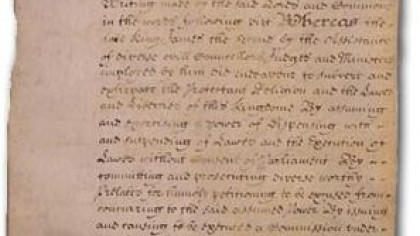 Writing made by the said Lords and Commons
in the words following viz Whereas the
late King James the second by the Assistance
of diverse evill Councellors Judges and Ministers
imployed by him did endeavour to subvert and
extirpate the Protestant Religion and the Lawes
and Liberties of this Kingdome By assuming
and exercising a power of dispensing with
and suspending of Lawes and the Execution of
Lawes without Consent of Parliament By
committing and prosecuting diverse worthy
Prelates for humbly petitioning to be excused from
concurring to the said assumed power By issuing
and causing to be executed a Commission under